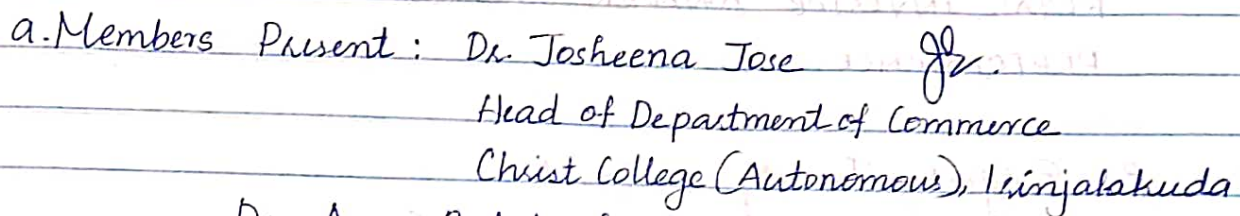 a. Members Present : Dr. Josheena Jose
Head of Department of Commerce
Christ College (Autonomous), Irinjalakuda